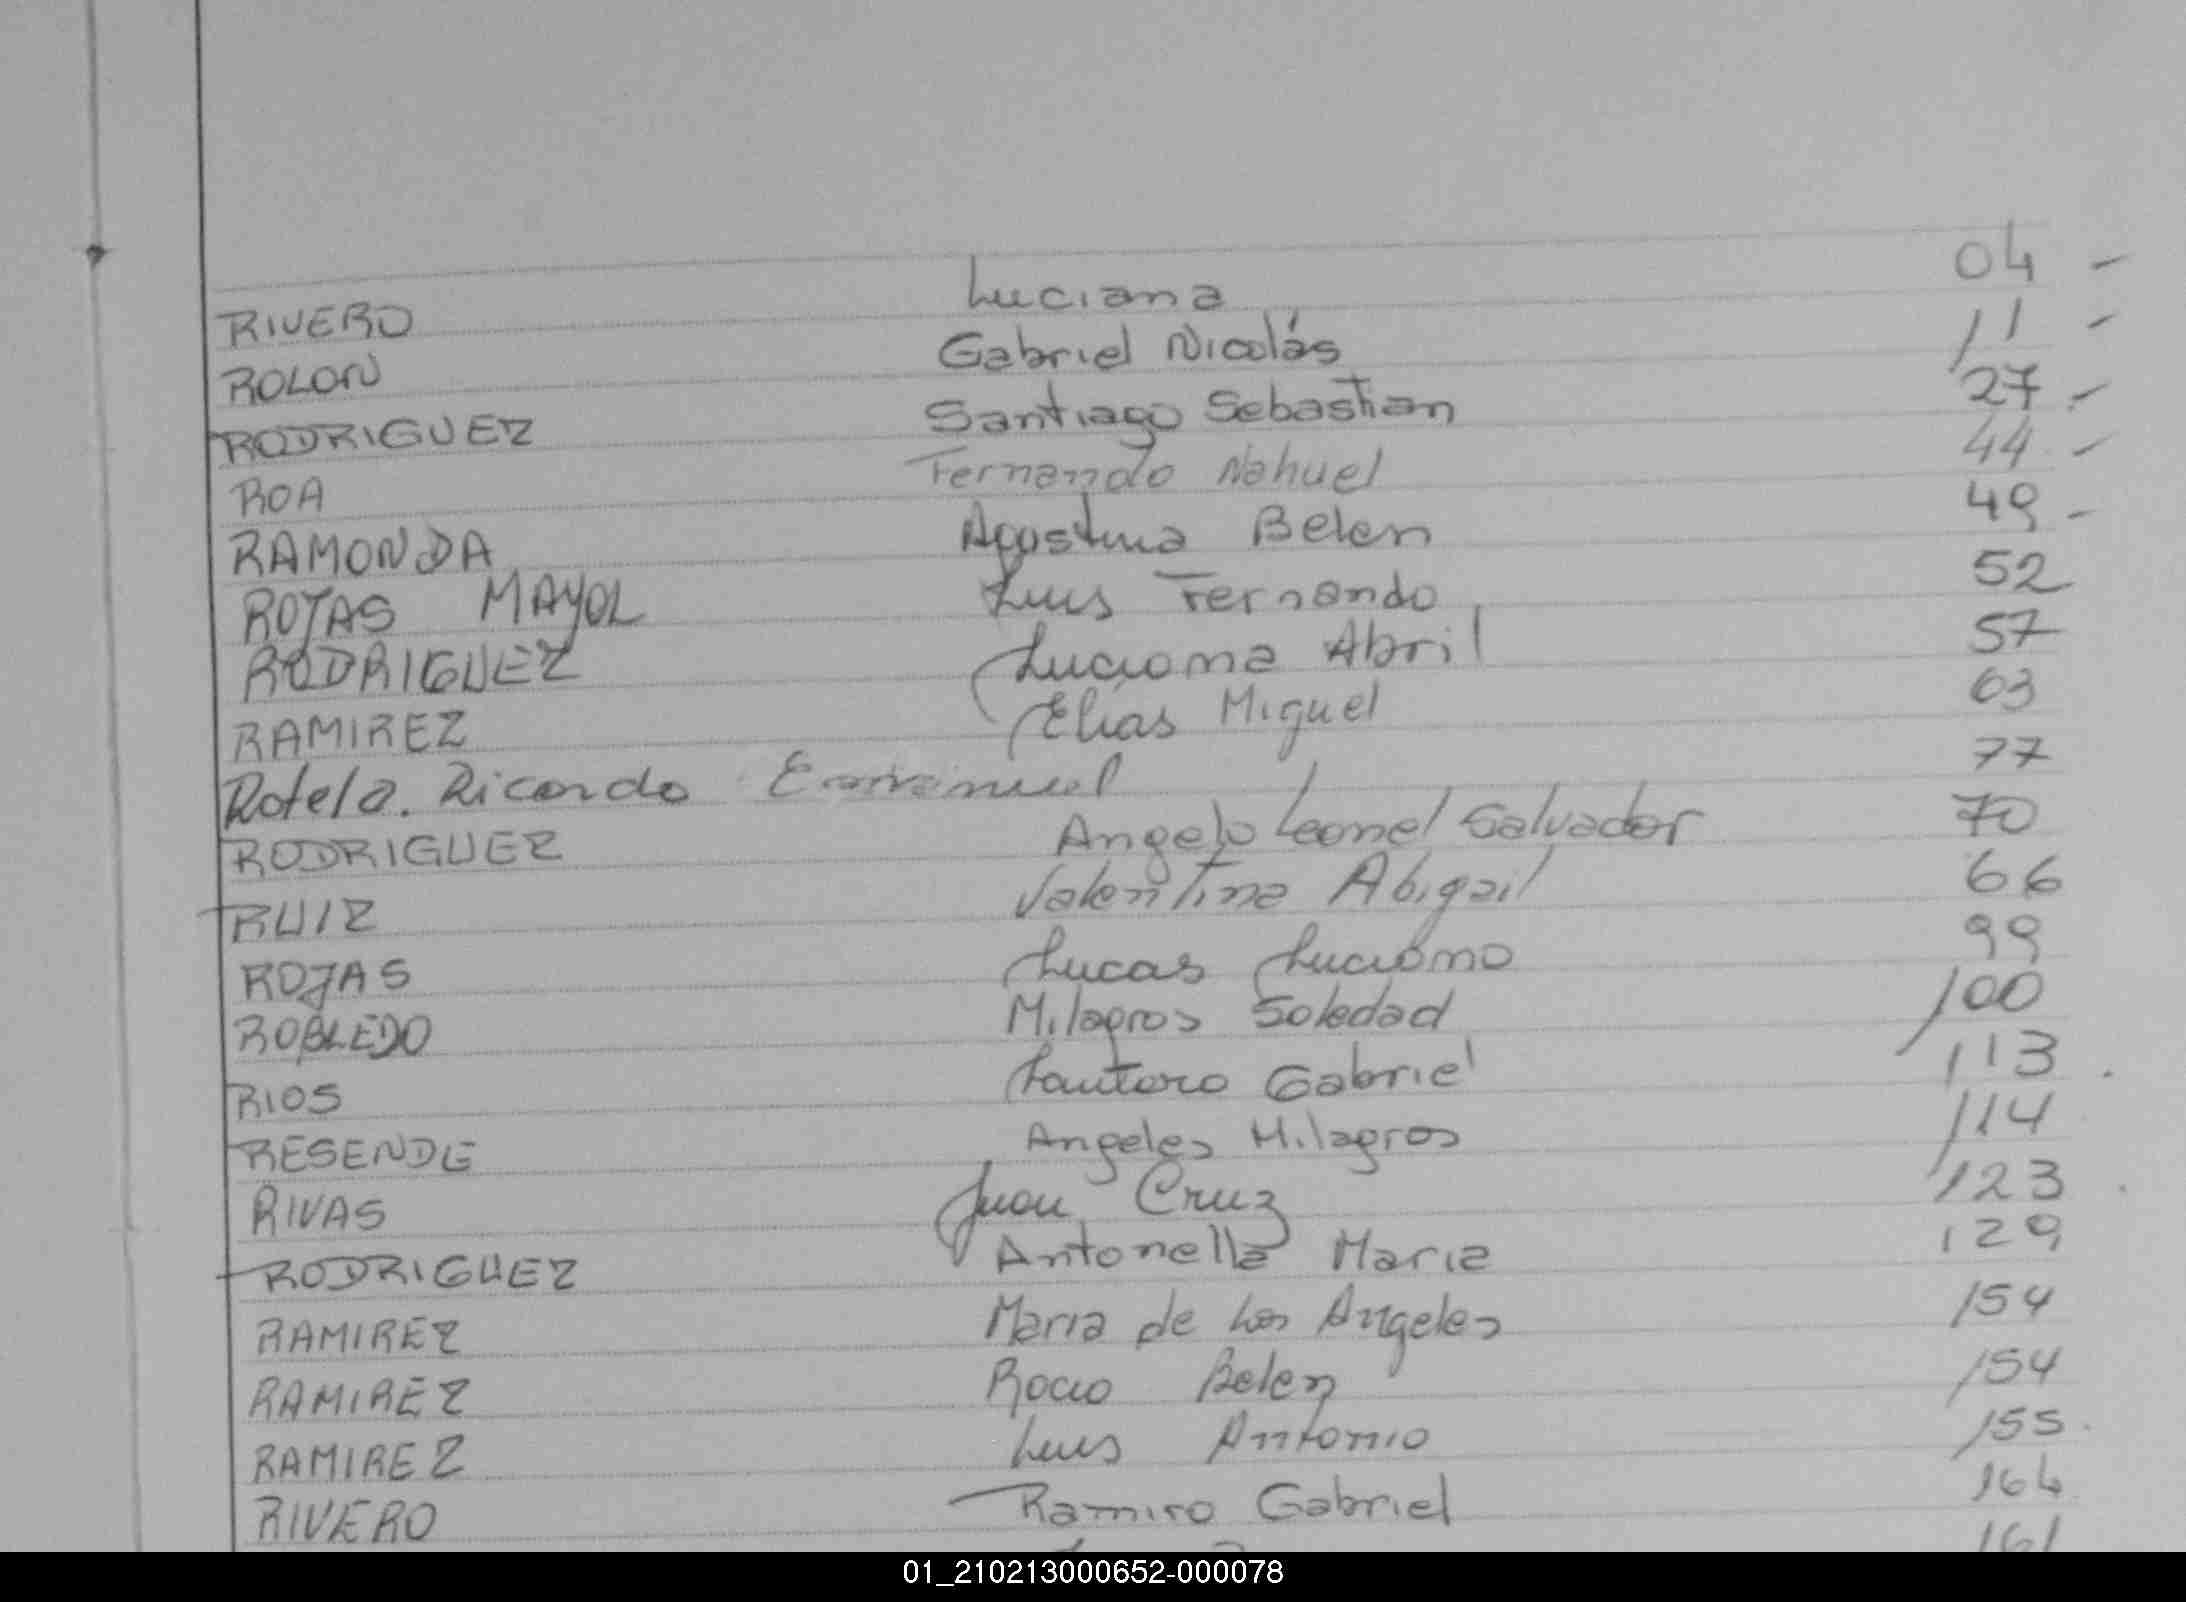 RIVERO Luciana 04 -
ROLON Gabriel Nicolás 11 -
RODRIGUEZ Santiago Sebastian 27 -
ROA Fernando Nahuel 44 -
RAMONDA Agostina Belen 49 -
ROJAS MAYOL Luis Fernando 52
RODRIGUEZ Luciana Abril 57
RAMIREZ Elias Miguel 63
Rotela. Ricardo Emmanuel 77
RODRIGUEZ Angelo Leonel Salvador 70
RUIZ Valentina Abigail 66
ROJAS Lucas Luciano 99
ROBLEDO Milagros Soledad 100
RIOS Lautaro Gabriel 113
RESENDE Angeles Milagros 114
RIVAS Juan Cruz 123
RODRIGUEZ Antonella Maria 129
RAMIREZ Maria de Los Angeles 154
RAMIREZ Rocio Belen 154
RAMIREZ Luis Antonio 155
RIVERO Ramiro Gabriel 164
161
01_210213000652-000078